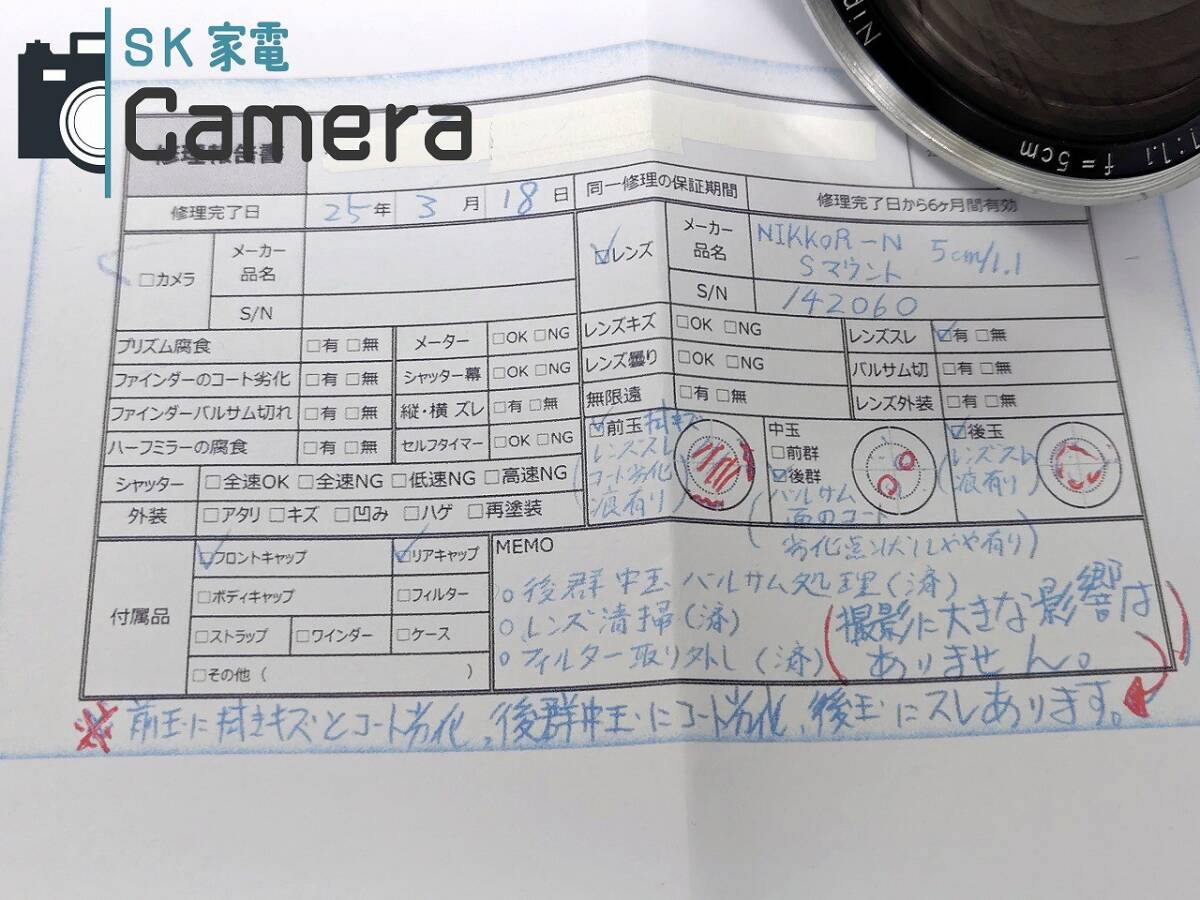 SK 家電
Camera
修理報告書
修理完了日 25年 3月 18日 同一修理の保証期間 修理完了日から6ヶ月間有効
□カメラ メーカー品名 ☑レンズ メーカー品名 NIKKOR-N 5cm/1.1
Sマウント
S/N S/N 142060
プリズム腐食 □有 □無 メーター □OK □NG レンズキズ □OK □NG レンズスレ ☑有 □無
ファインダーのコート劣化 □有 □無 シャッター幕 □OK □NG レンズ曇り □OK □NG バルサム切 □有 □無
ファインダーバルサム切れ □有 □無 縦・横 ズレ □有 □無 無限遠 □有 □無 レンズ外装 □有 □無
ハーフミラーの腐食 □有 □無 セルフタイマー □OK □NG
☑前玉 拭キズ
レンズスレ
コート劣化
痕有り
中玉
□前群
☑後群
(バルサム
面のコート
劣化点状ハルやや有り)
☑後玉
(レンズスレ
痕有り)
シャッター □全速OK □全速NG □低速NG □高速NG
外装 □アタリ □キズ □凹み □ハゲ □再塗装
付属品 ☑フロントキャップ ☑リアキャップ
□ボディキャップ □フィルター
□ストラップ □ワインダー □ケース
□その他 ( )
MEMO
○後群中玉バルサム処理(済)
○レンズ清掃(済)
○フィルター取り外し(済)
(撮影に大きな影響は
ありません。)
※前玉に拭きキズとコート劣化、後群中玉にコート劣化、後玉にスレあります。
Nip
1:1.1 f=5cm